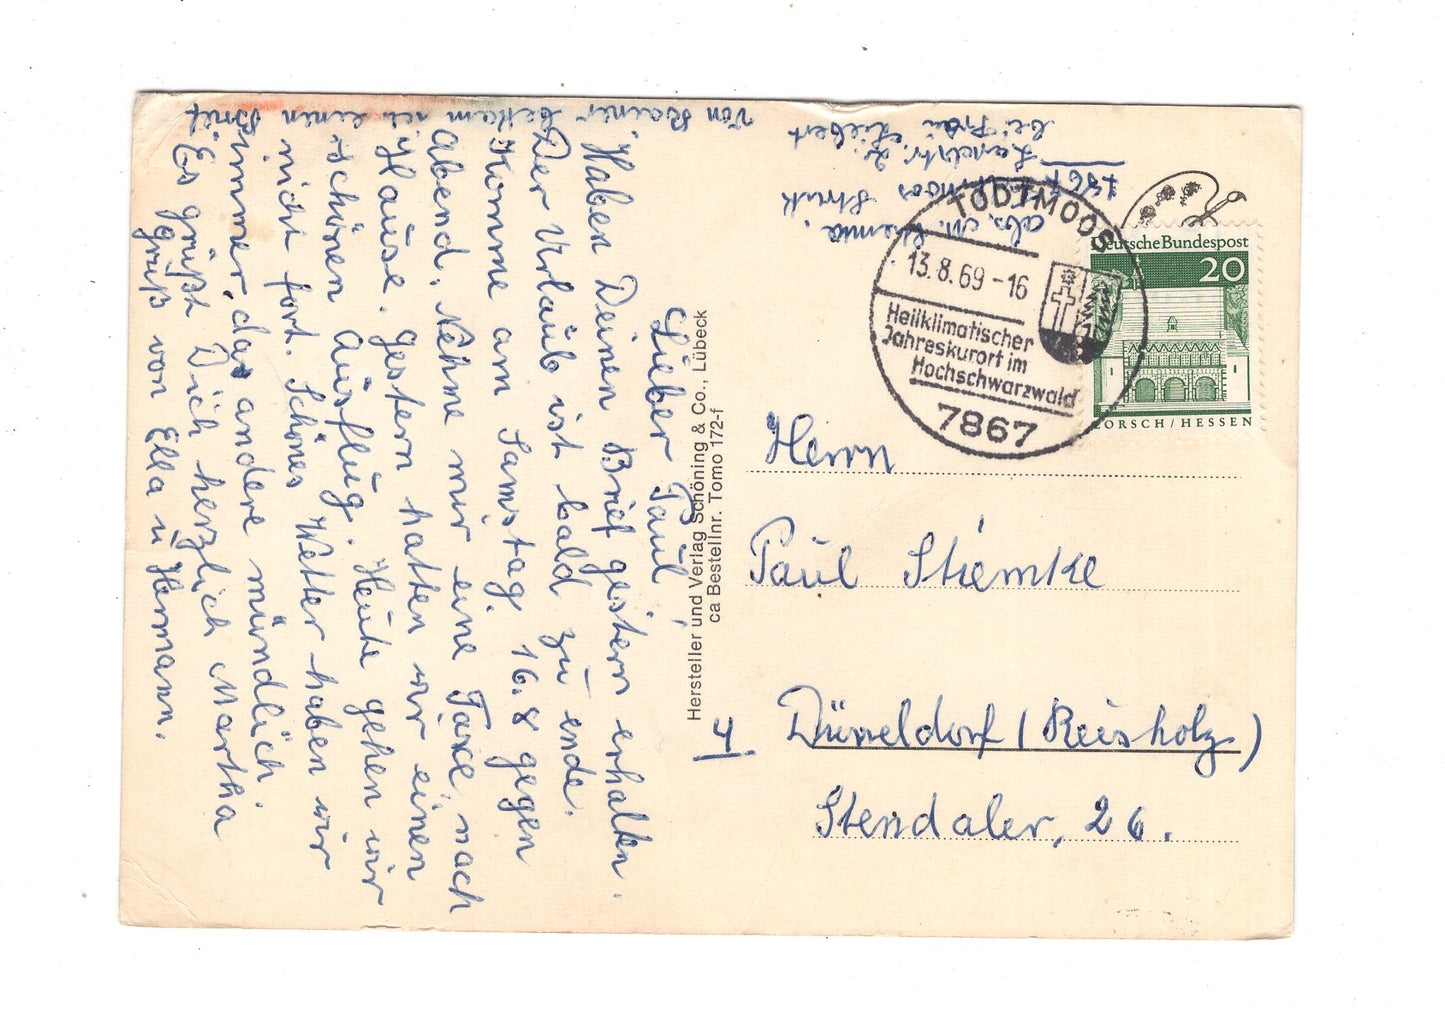 Lieber Paul,
Haben Deinen Brief gestern erhalten.
Der Urlaub ist bald zu ende.
Komme am Samstag. 16.8 gegen
Abend. Nehme mir eine Taxe nach
Hause. Gestern hatten wir einen
schönen Ausflug. Heute gehen wir
nicht fort. Schönes Wetter haben wir
immer, das andere mündlich.
Es grüßt Dich herzlich Martha
Gruß von Ella u Hermann.
Von Rainer bekam ich einen Brief
Hersteller und Verlag Schöning & Co., Lübeck
ca Bestellnr. Tomo 172-f
abs. M.
bei Frau Liebert
TODTMOOS
13.8.69-16
Heilklimatischer
Jahreskurort im
Hochschwarzwald
7867
Deutsche Bundespost
20
LORSCH/HESSEN
Herrn
Paul Stiemke
4 Düsseldorf (Reisholz)
Stendaler, 26.